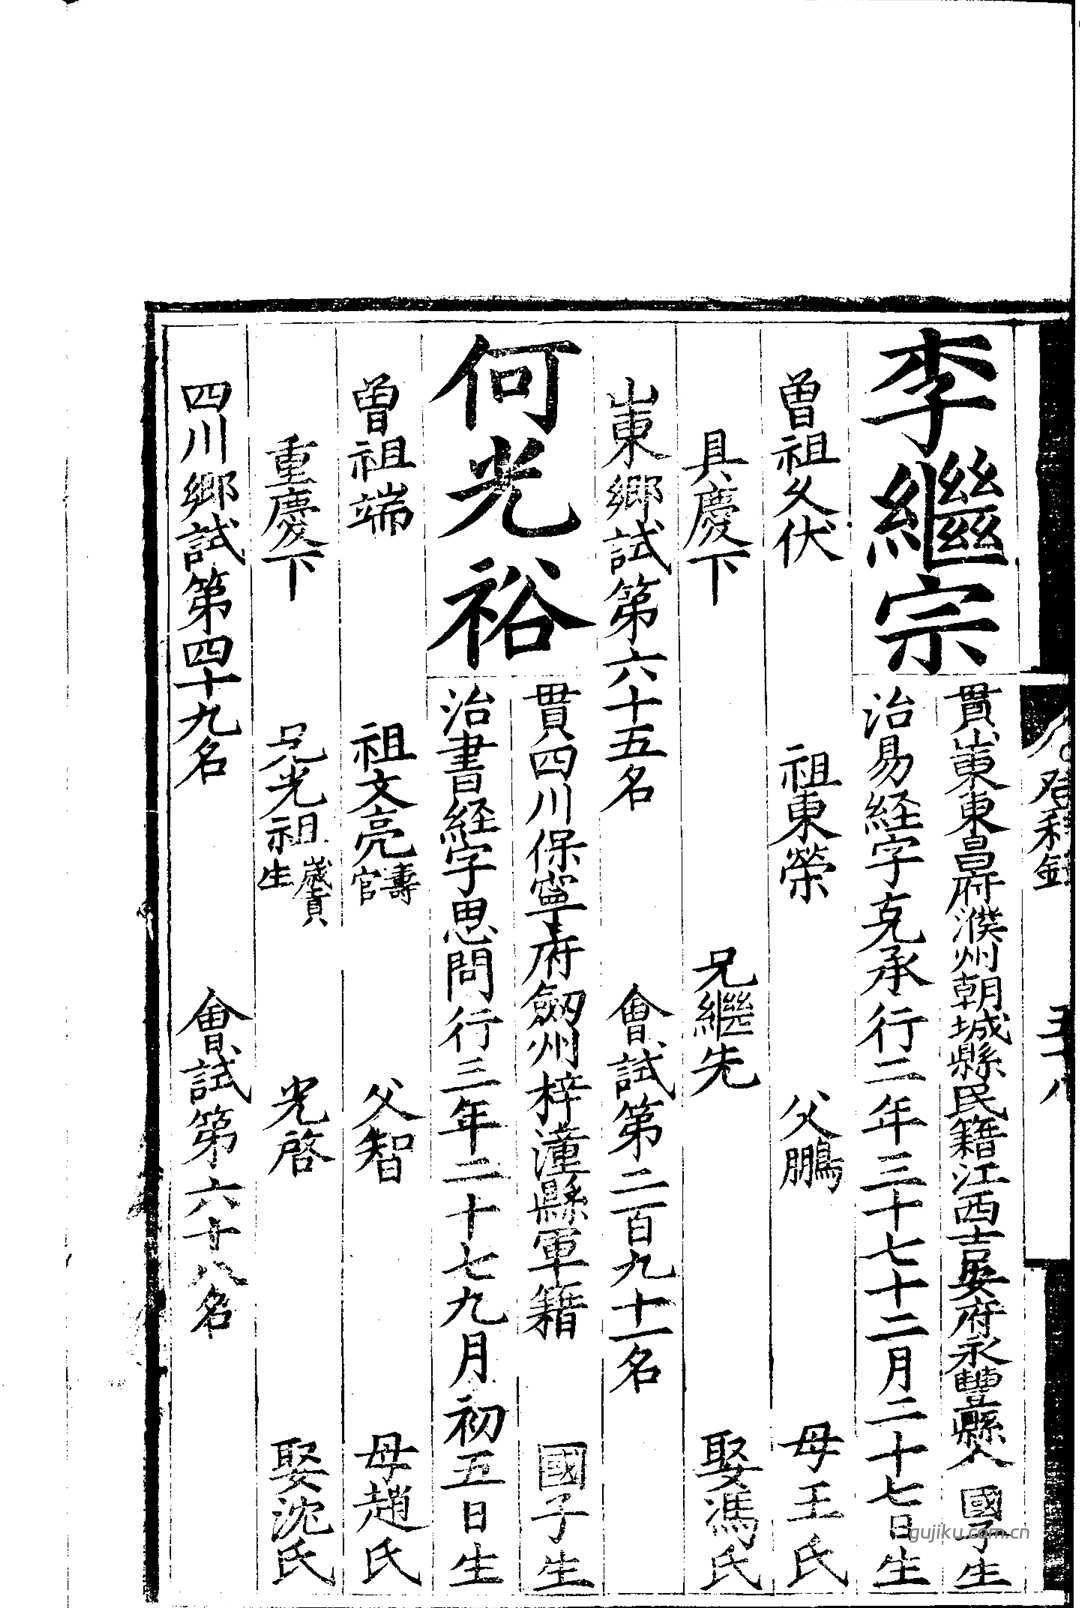 登科錄
李繼宗
貫山東東昌府濮州朝城縣民籍江西吉安府永豐縣人 國子生
治易經字克承行二年三十七十二月二十七日生
曾祖久伏 祖東榮 父鵬 母王氏
具慶下 兄繼先 娶馮氏
山東鄉試第六十五名 會試第二百九十一名
何光裕
貫四川保寧府劒州梓潼縣軍籍 國子生
治書經字思問行三年二十七九月初五日生
曾祖端 祖文亮壽官 父智 母趙氏
重慶下 兄光祖歲貢生 光啓 娶沈氏
四川鄉試第四十九名 會試第六十八名
gujiku.com.cn